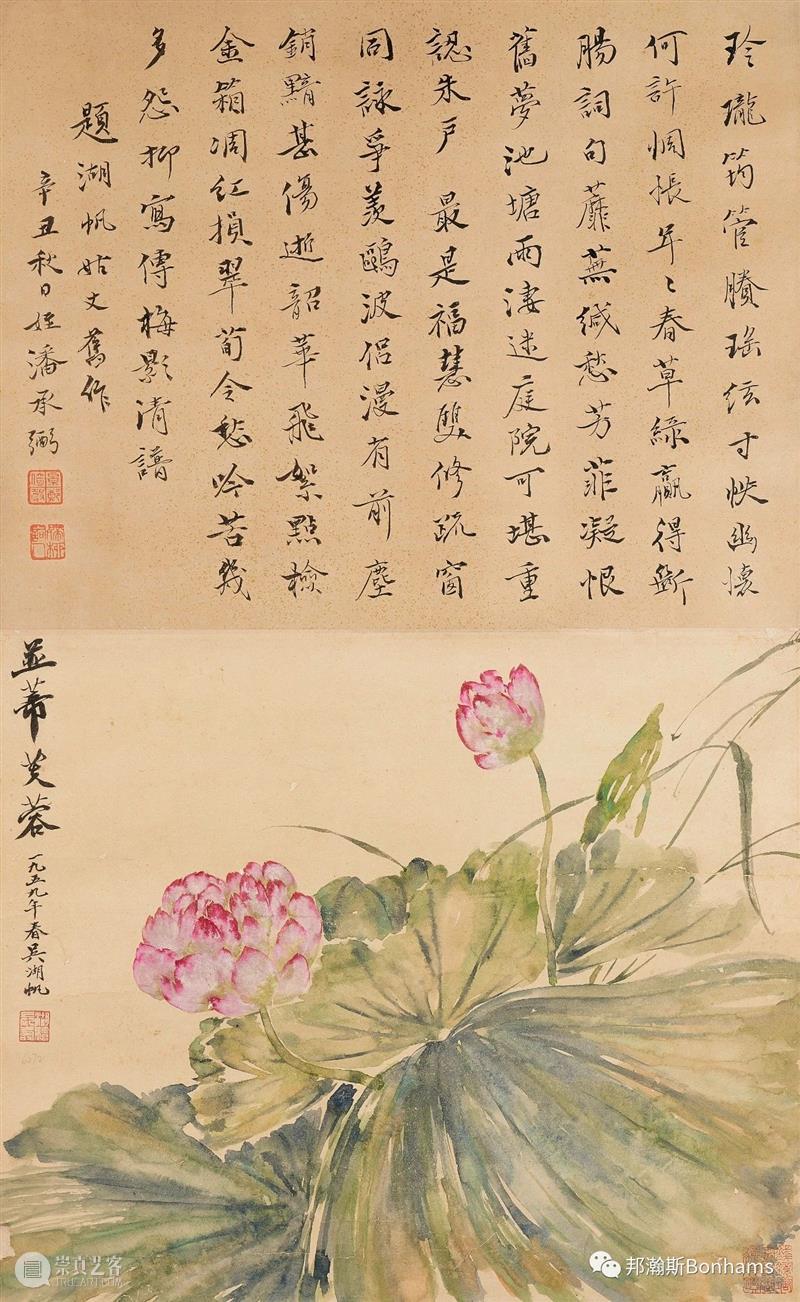 玲瓏筠管賸瑤絃寸帙幽懷
何許惆悵年〻春草綠贏得斷
腸詞句蘼蕪緘愁芳菲凝恨
舊夢池塘雨淒迷庭院可堪重
認朱戶 最是福慧雙修疏窗
同詠爭羨鷗波侶漫有前塵
銷黯甚傷逝韶華飛絮點檢
金箱凋紅損翠荀令愁吟苦幾
多怨抑寫傳梅影清譜
題湖帆姑丈舊作
辛丑秋日姪潘承弼
並蒂芙蓉
一九五九年春吳湖帆
崇真艺客
TRUEART.COM
邦瀚斯Bonhams